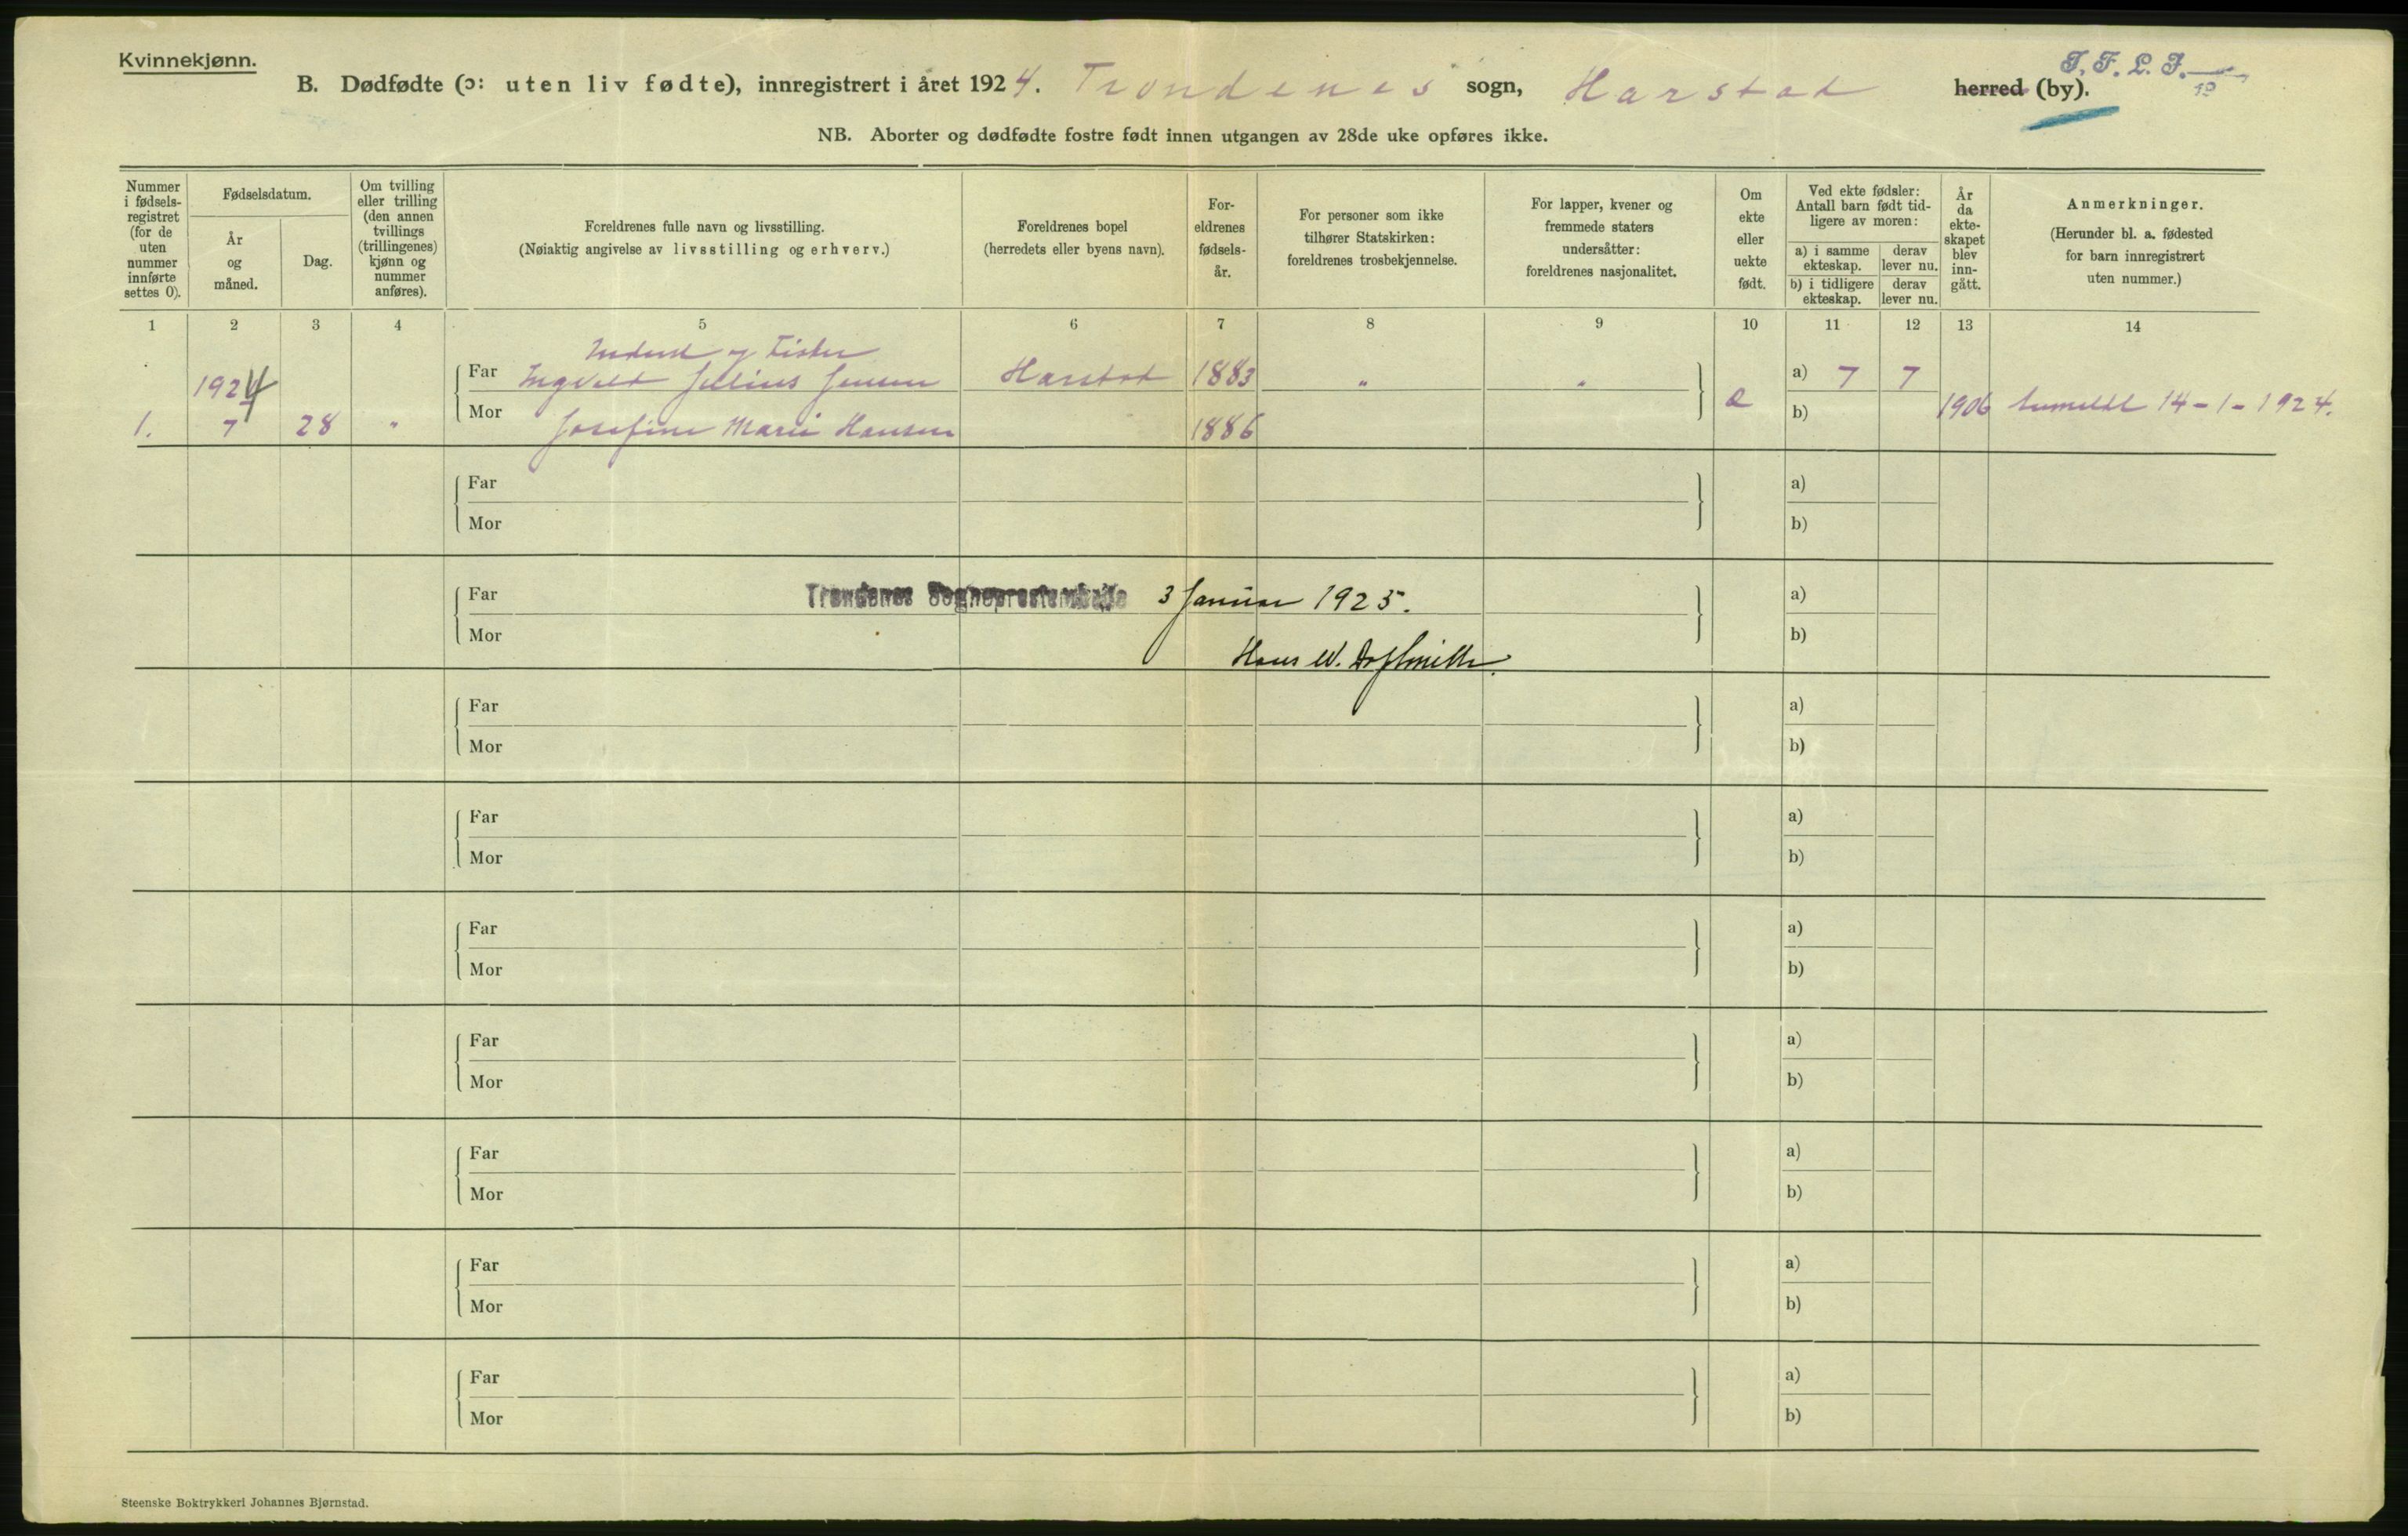 Kvinnekjønn.
B. Dødfødte (ɔ: uten liv fødte), innregistrert i året 1924. Trondenes sogn, Harstad herred (by).
T. F. L. J.
NB. Aborter og dødfødte fostre født innen utgangen av 28de uke opføres ikke.
Nummer i fødsels-registret (for de uten nummer innførte settes 0).
Fødselsdatum.
År og måned.
Dag.
Om tvilling eller trilling (den annen tvillings (trillingenes) kjønn og nummer anføres).
Foreldrenes fulle navn og livsstilling.
(Nøiaktig angivelse av livsstilling og erhverv.)
Foreldrenes bopel
(herredets eller byens navn).
For-eldrenes fødsels-år.
For personer som ikke tilhører Statskirken: foreldrenes trosbekjennelse.
For lapper, kvener og fremmede staters undersåtter: foreldrenes nasjonalitet.
Om ekte eller uekte født.
Ved ekte fødsler: Antall barn født tid-ligere av moren:
a) i samme ekteskap.
derav lever nu.
b) i tidligere ekteskap.
derav lever nu.
År da ekte-skapet blev inn-gått.
Anmerkninger.
(Herunder bl. a. fødested for barn innregistrert uten nummer.)
1 2 3 4 5 6 7 8 9 10 11 12 13 14
og Fisker
1924 Far Ingvald Julius Jensen Harstad 1883 " " a) 7 7
1. 7 28 " Mor Josefine Marie Hansen 1886 e b) 1906 anmeldt 14-1-1924.
Far a)
Mor b)
Far Trondenes Sogneprestembede 3 Januar 1925. a)
Mor Hans W. b)
Far a)
Mor b)
Far a)
Mor b)
Far a)
Mor b)
Far a)
Mor b)
Far a)
Mor b)
Far a)
Mor b)
Far a)
Mor b)
Steenske Boktrykkeri Johannes Bjørnstad.